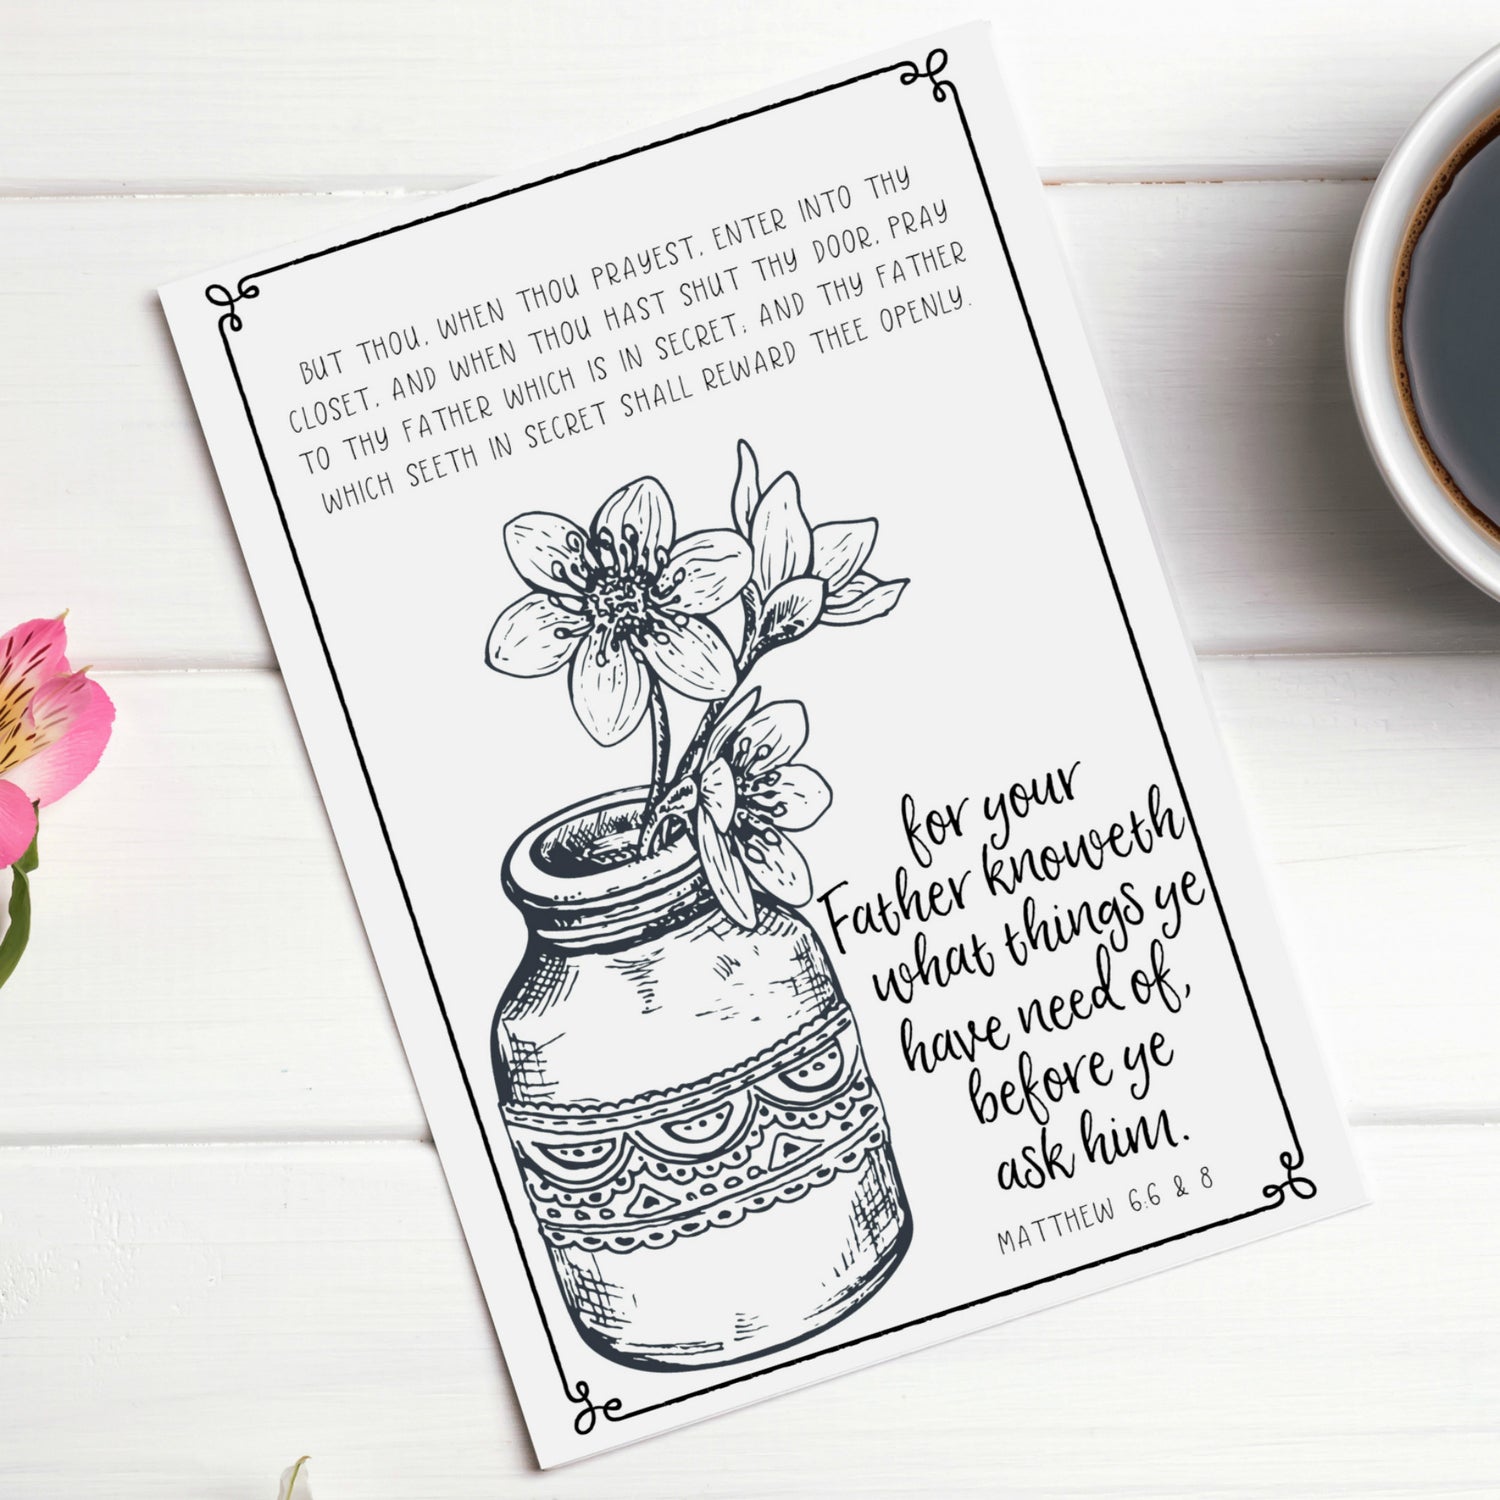 BUT THOU, WHEN THOU PRAYEST, ENTER INTO THY
CLOSET, AND WHEN THOU HAST SHUT THY DOOR, PRAY
TO THY FATHER WHICH IS IN SECRET; AND THY FATHER
WHICH SEETH IN SECRET SHALL REWARD THEE OPENLY.
for your
Father knoweth
what things ye
have need of,
before ye
ask him.
MATTHEW 6:6 & 8